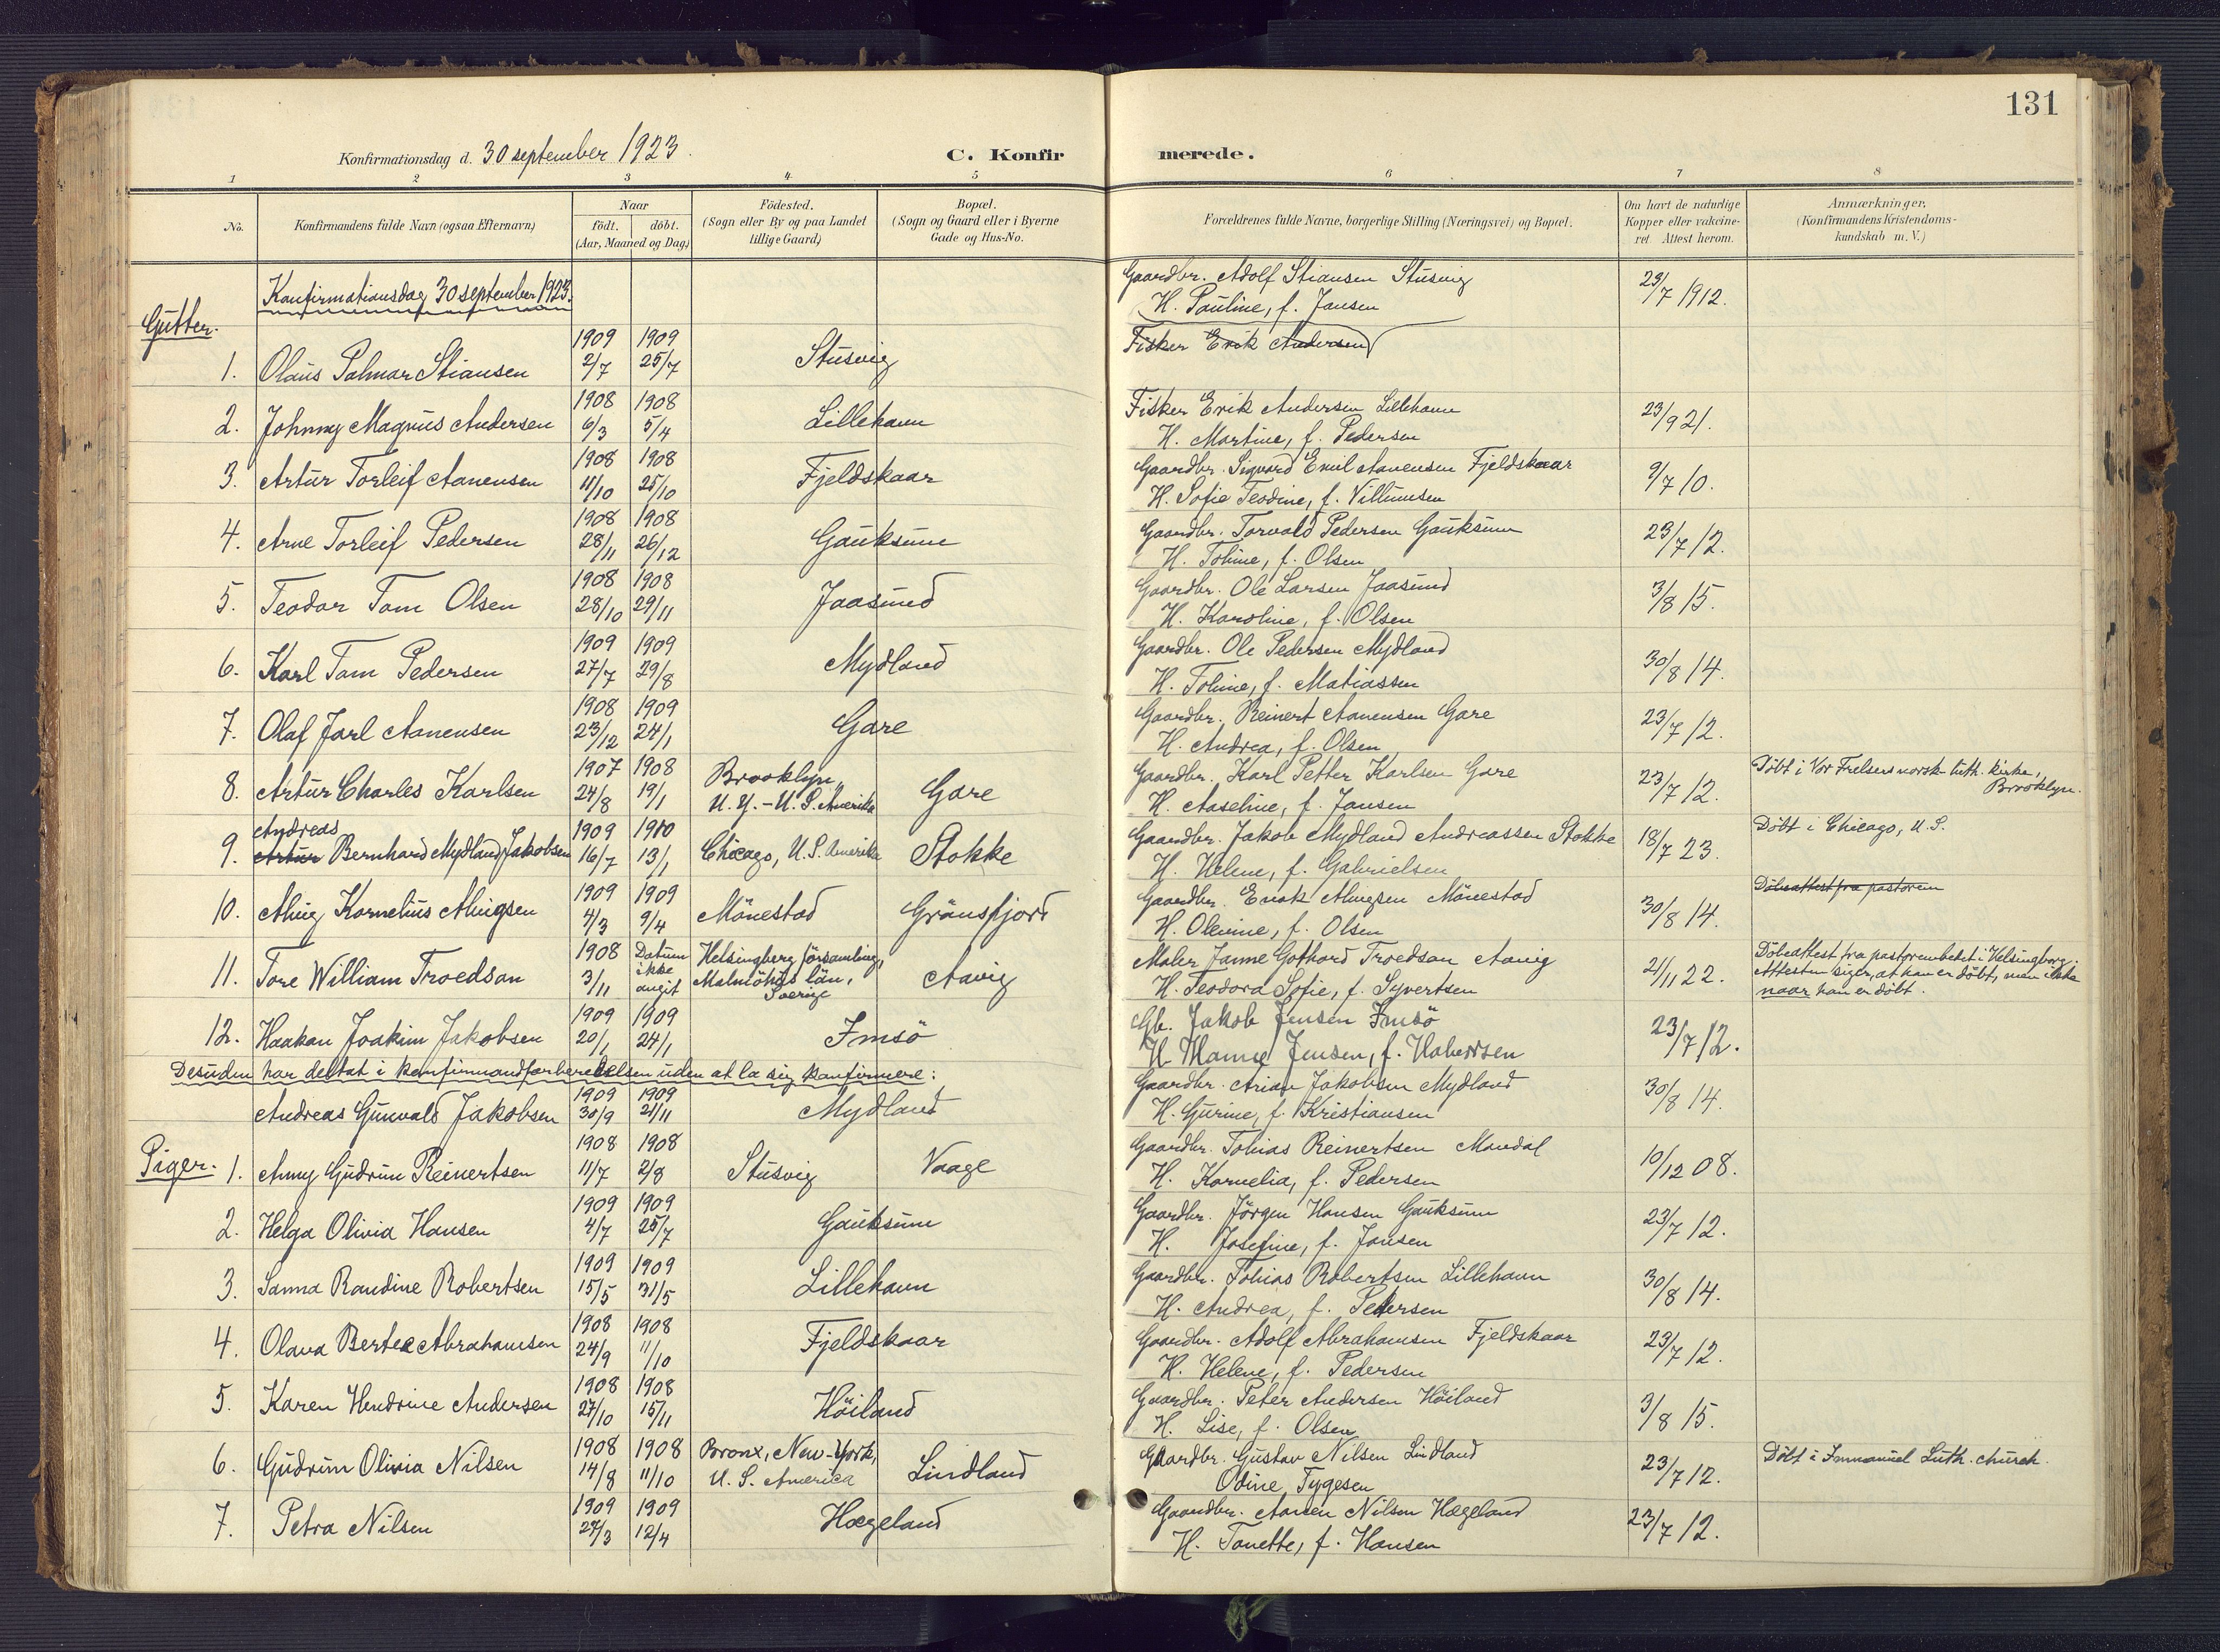 131
Konfirmationsdag d. 30 september 1923.
C. Konfirmerede.
1 2 3 4 5 6 7 8
No.
Konfirmandens fulde Navn (ogsaa Efternavn)
Naar
födt. döbt.
(Aar, Maaned og Dag)
Födested.
(Sogn eller By og paa Landet
tillige Gaard)
Bopæl.
(Sogn og Gaard eller i Byerne
Gade og Hus-No.
Forældrenes fulde Navne, borgerlige Stilling (Næringsvei) og Bopæl.
Om havt de naturlige
Kopper eller vakcine-
ret Attest herom.
Anmærkninger.
(Konfirmandens Kristendoms-
kundskab m. V.)
Konfirmationsdag 30 september 1923.
Gutter.
1. Olaus Palmar Stiansen 1909 2/7 1909 25/7 Stusvig
Gaardbr. Adolf Stiansen Stusvig
H. Pauline, f. Jansen
23/7 1912.
Fisker Erik Andersen
2. Johnny Magnus Andersen 1908 6/3 1908 5/4 Lillehavn
Fisker Erik Andersen Lillehavn
H. Martine, f. Pedersen
23/9 21.
3. Artur Torleif Aanensen 1908 11/10 1908 25/10 Fjeldskaar
Gaardbr. Sigvard Emil Aanensen Fjeldskaar
H. Sofie Teodine, f. Villumsen
9/7 10.
4. Arne Torleif Pedersen 1908 28/11 1908 26/12 Gauksum
Gaardbr. Torvald Pedersen Gauksum
H. Toline, f. Olsen
23/7 12.
5. Teodor Tom Olsen 1908 28/10 1908 29/11 Jaasund
Gaardbr. Ole Larsen Jaasund
H. Karoline, f. Olsen
3/8 15.
6. Karl Tom Pedersen 1909 27/7 1909 29/8 Mydland
Gaardbr. Ole Pedersen Mydland
H. Toline, f. Matiassen
30/8 14.
7. Olaf Jarl Aanensen 1908 23/12 1909 24/1 Gare
Gaardbr. Reinert Aanensen Gare
H. Andrea, f. Olsen
23/7 12.
8. Artur Charles Karlsen 1907 24/8 1908 19/1 Brooklyn, N.Y. - U.S. Amerika Gare
Gaardbr. Karl Petter Karlsen Gare
H. Aaseline, f. Jansen
23/7 12.
Döbt i Vor Frelsers norsk luth. kirke,
Brooklyn.
Andreas
9. Artur Bernhard Mydland Jakobsen 1909 16/7 1910 13/1 Chicago, U.S. Amerika Stokke
Gaardbr. Jakob Mydland Andreassen Stokke
H. Helene, f. Gabrielsen
18/7 23.
Döbt i Chicago, U.S.
10. Almg Kornelius Almgsen 1909 4/3 1909 9/4 Mönestad Grönsfjord
Gaardbr. Enok Almgsen Mönestad
H. Olevine, f. Olsen
30/8 14.
Döbeattest fra pastorem
11. Tore William Troedson 1908 3/11 Datum ikke angit Helsingborg församling, Malmöhus län, Sverige Aavig
Maler Janne Gothard Troedson Aavig
H. Teodora Sofie, f. Syvertsen
21/11 22.
Döbeattest fra pastorembedet i Helsingborg.
Attesten siger, at han er döbt, men ikke
naar han er döbt.
12. Haakon Joakim Jakobsen 1909 20/1 1909 24/1 Imsö
Gb. Jakob Jensen Imsö
H. Jensen, f.
23/7 12.
Desuden har deltat i konfirmandforberedelsen uden at la sig konfirmere:
Andreas Gunvald Jakobsen 1909 30/9 1909 21/11 Mydland
Gaardbr. Arian Jakobsen Mydland
H. Gurine, f. Kristiansen
30/8 14.
Piger.
1. Anny Gudrun Reinertsen 1908 11/7 1908 2/8 Stusvig Vaage
Gaardbr. Tobias Reinertsen Mandal
H. Kornelia, f. Pedersen
10/12 08.
2. Helga Olivia Hansen 1909 4/7 1909 25/7 Gauksum
Gaardbr. Jörgen Hansen Gauksum
H. Josefine, f. Jansen
23/7 12.
3. Sanna Randine Robertsen 1909 15/5 1909 31/5 Lillehavn
Gaardbr. Tobias Robertsen Lillehavn
H. Andrea, f. Pedersen
30/8 14.
4. Olava Bertea Abrahamsen 1908 24/9 1908 11/10 Fjeldskaar
Gaardbr. Adolf Abrahamsen Fjeldskaar
H. Helene, f. Pedersen
23/7 12.
5. Karen Hendrine Andersen 1908 27/10 1908 15/11 Höiland
Gaardbr. Peter Andersen Höiland
H. Lise, f. Olsen
3/8 15.
6. Gudrun Olivia Nilsen 1908 14/8 1908 11/10 Bronx, New-York, U.S. America Lindland
Gaardbr. Gustav Nilsen Lindland
Odine Tygesen
23/7 12.
Döbt i Immanuel Luth. church.
7. Petra Nilsen 1909 27/3 1909 12/4 Hægeland
Gaardbr. Aanen Nilsen Hægeland
H. Tonette, f. Hansen
23/7 12.